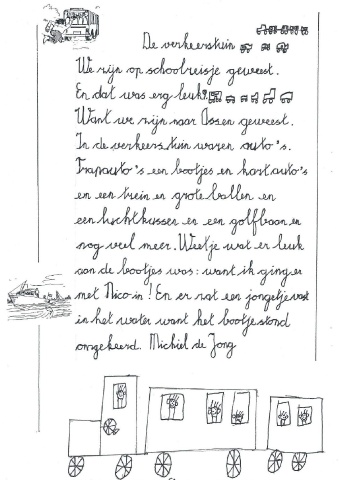 De verkeerstuin
We zijn op schoolreisje geweest.
En dat was erg leuk!
Want we zijn naar Assen geweest.
In de verkeerstuin waren auto's.
Trapauto's een bootjes en kartauto's
en een trein en grote ballen en
een luchtkussen en een golfbaan en
nog veel meer. Weet je wat er leuk
aan de bootjes was: want ik ging er
met Nico in! En er zat een jongetje vast
in het water want het bootje stond
omgekeerd. Michiel de Jong